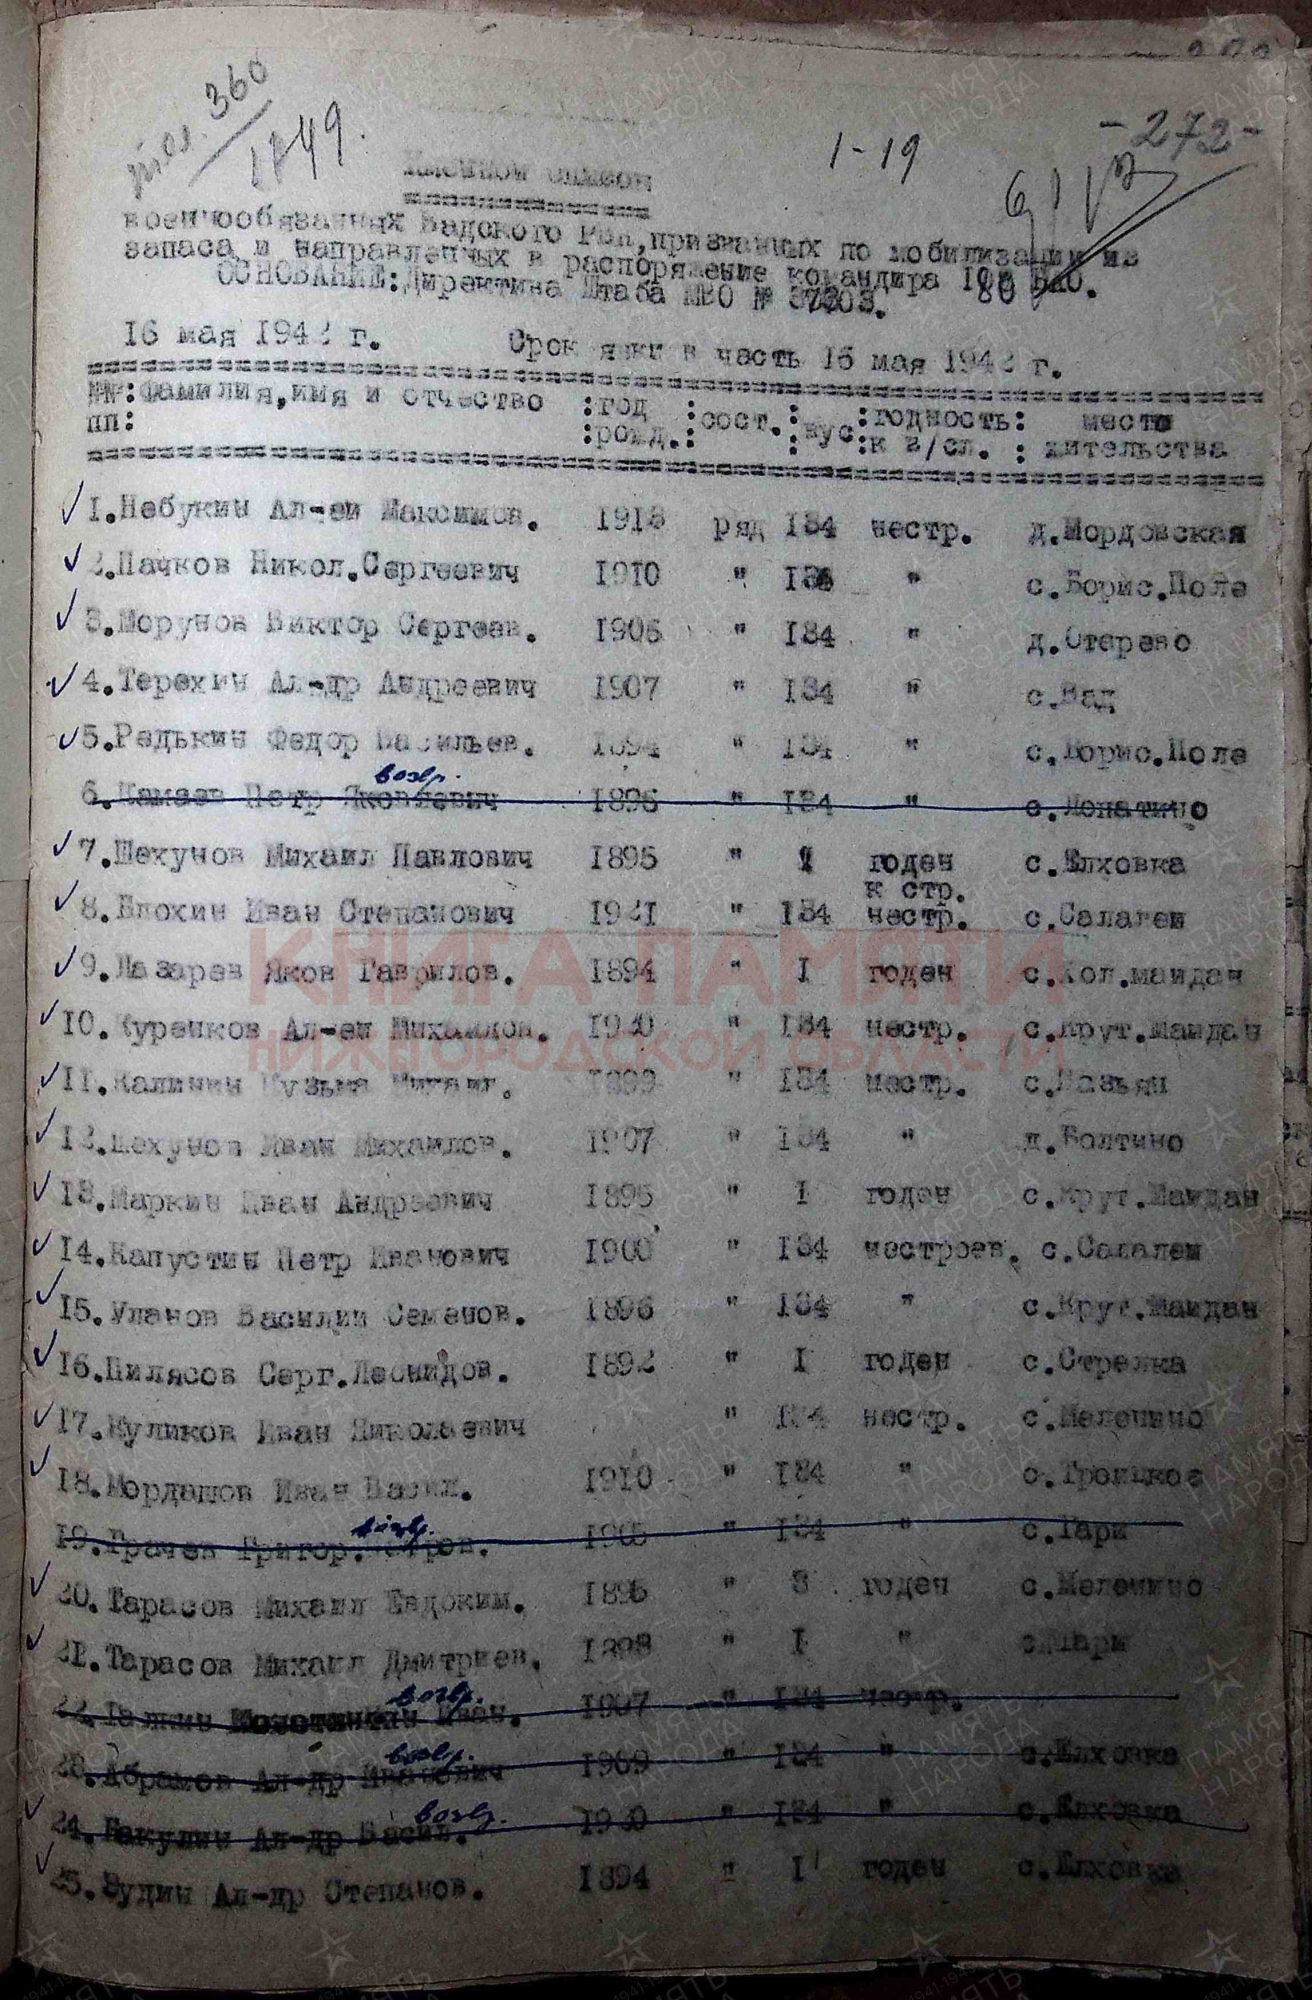 360
1749.
1-19
-272-
Именной список
военнообязанных Вадского РВК, призванных по мобилизации из
запаса и направленных в распоряжение командира 80 БАО.
ОСНОВАНИЕ: Директива Штаба МВО №
16 мая 1942 г. Срок явки в часть 16 мая 1942 г.
№№: Фамилия, имя и отчество :год :сост.: :годность: место
пп: :рожд.: :вус:к в/сл. : жительства
1. Небукин Ал-ей Максимов. 1918 ряд 134 нестр. д.Мордовская
2. Пачков Никол.Сергеевич 1910 " 134 " с.Борис.Поле
3. Морунов Виктор Сергеев. 1906 " 134 " д.Старево
4. Терехин Ал-др Андреевич 1907 " 134 " с.Вад
5. Редькин Федор Васильев. 1894 " 134 " с.Борис.Поле
возвр.
6. Камаев Петр Яковлевич 1896 " 134 " с.Лопатино
7. Шехунов Михаил Павлович 1895 " 1 годен с.Елховка
к стр.
8. Блохин Иван Степанович 1921 " 134 нестр. с.Салагем
9. Лазарев Яков Гаврилов. 1894 " 1 годен с.Кол.майдан
10. Куренков Ал-ей Михайлов. 1920 " 134 нестр. с.Крут.Майдан
11. Калинин Кузьма Михаил. 1899 " 134 нестр. с.Казьян
12. Шехунов Иван Михайлов. 1907 " 134 " д.Болтино
13. Маркин Иван Андреевич 1895 " 1 годен с.Крут.Майдан
14. Капустин Петр Иванович 1900 " 134 нестроев. с.Салалей
15. Уланов Василий Семенов. 1896 " 134 " с.Крут.Майдан
16. Пилясов Серг.Леонидов. 1892 " 1 годен с.Стрелка
17. Куликов Иван Николаевич " 134 нестр. с.Меленино
18. Мордашов Иван Васил. 1910 " 134 " с.Троицкое
возвр.
19. Грачев Григор.Петров. 1905 " 134 " с.Гари
20. Тарасов Михаил Евдоким. 1895 " 3 годен с.Меленино
21. Тарасов Михаил Дмитриев. 1898 " 1 " с.Гари
возвр.
22. Галкин Константин Иван. 1907 " 134 нестр.
возвр.
23. Абрамов Ал-др Иванович 1909 " 134 " с.Елховка
возвр.
24. Бакулин Ал-др Васил. 1920 " 134 " с.Елховка
25. Зудин Ал-др Степанов. 1894 " 1 годен с.Елховка
КНИГА ПАМЯТИ
НИЖЕГОРОДСКОЙ ОБЛАСТИ
ПАМЯТЬ
НАРОДА